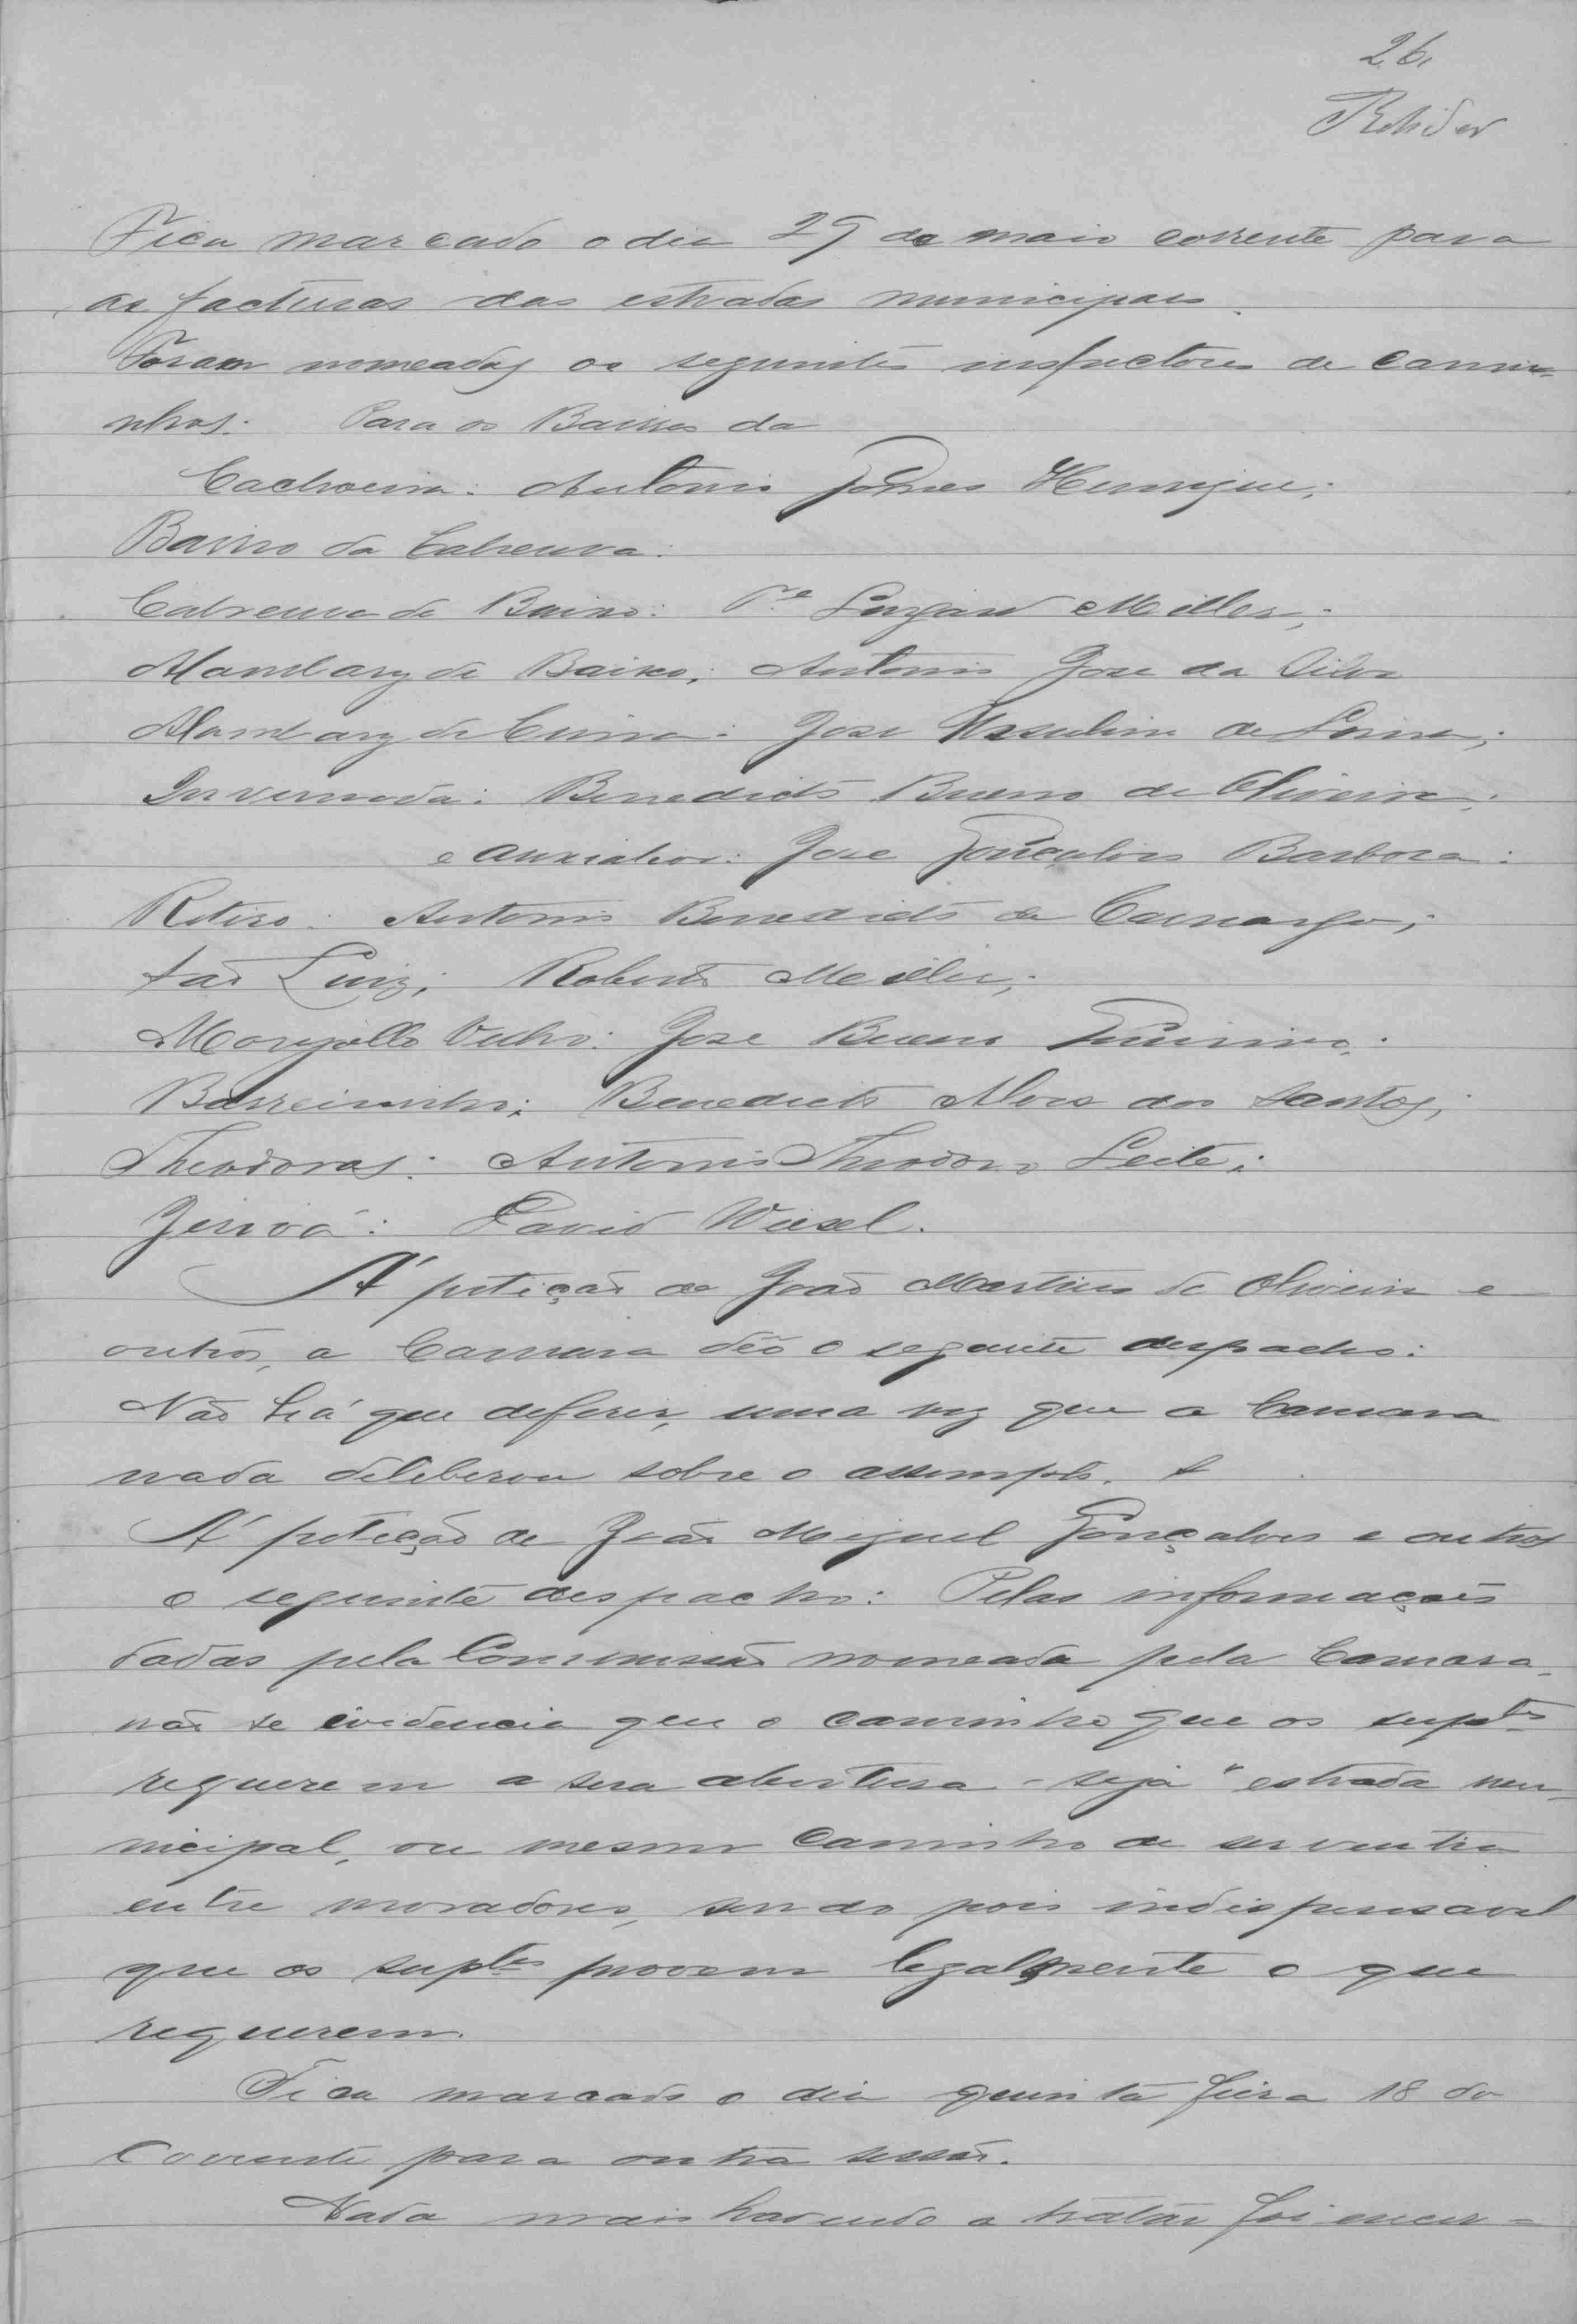 26.
Fica marcado o dia 29 de maio corrente para
as facturas das estradas municipaes.
Foram nomeados os seguintes inspectores de cami-
nhos: Para os Bairros da
Cachoeira: Antonio Gomes Henrique;
Bairro da Cabreuva:
Cabreuva de Baixo: Miller;
Mambary de Baixo: Antonio Jose da Silva
Mambary de Cima: Jose de Lima;
Invernada: Benedicto Bueno de Oliveira;
e auxiliar: Jose Gonçalves Barboza:
Retiro: Antonio Benedicto de Camargo;
São Luiz; Roberto Meiller;
Monjollo Velho: Jose Bueno
Barreirinho: Benedicto Alves dos Santos;
Theodoros: Antonio Theodoro Leite;
Jerivá: David Wiesel.
A' petição de João Martins de Oliveira e
outros, a Camara deo o seguinte despacho:
Não há que deferir, uma vez que a Camara
nada deliberou sobre o assumpto.
A' petição de João Miguel Gonçalves e outros
o seguinte despacho: Pelas informações
dadas pela Commissão nomeada pela Camara,
não se evidencia que o caminho que os suptes
requerem a sua abertura - seja "estrada mu-
nicipal, ou mesmo caminho de serventia
entre moradores, sendo pois indispensavel
que os suptes provem legalmente o que
requerem.
Fica marcado o dia quinta feira 18 do
corrente para outra sessão.
Nada mais havendo a tratar foi encer-